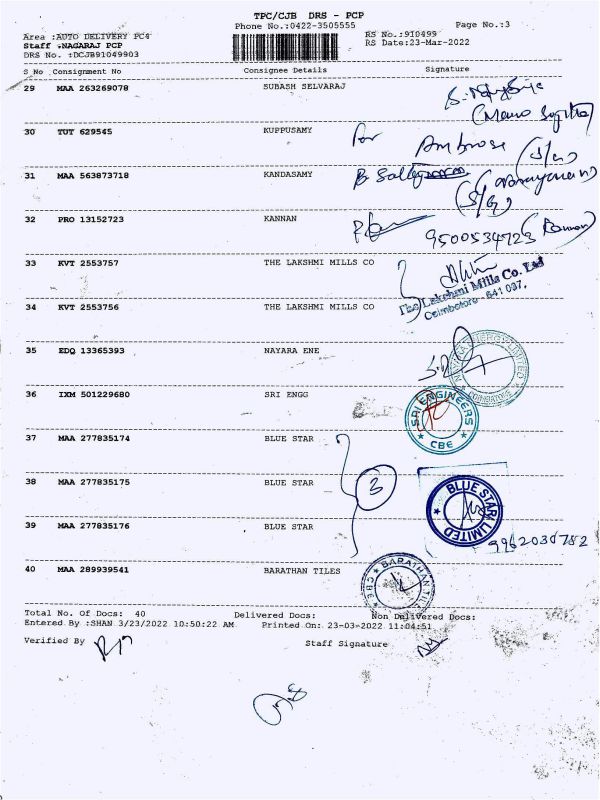 TPC/CJB DRS - PCP
Phone No.:0422-3505555
Page No.:3
Area :AUTO DELIVERY PC4
RS No.:910499
Staff :NAGARAJ PCP
RS Date:23-Mar-2022
DRS No. :DCJB91049903
S_No Consignment No Consignee Details Signature
29 MAA 263269078 SUBASH SELVARAJ
30 TUT 629545 KUPPUSAMY
for Ambrose (S/g)
31 MAA 563873718 KANDASAMY
(S/g)
32 PRO 13152723 KANNAN
9500534723
33 KVT 2553757 THE LAKSHMI MILLS CO
The Lakshmi Mills Co. Ltd
Coimbatore - 641 037.
34 KVT 2553756 THE LAKSHMI MILLS CO
35 EDQ 13365393 NAYARA ENE
NAYARA ENERGY LIMITED
COIMBATORE
36 IXM 501229680 SRI ENGG
SRI ENGINEERS
CBE
37 MAA 277835174 BLUE STAR
38 MAA 277835175 BLUE STAR
3
BLUE STAR LIMITED
39 MAA 277835176 BLUE STAR
9962030782
40 MAA 289939541 BARATHAN TILES
BARATHAN TILES
Total No. Of Docs: 40 Delivered Docs: Non Delivered Docs:
Entered By :SHAN 3/23/2022 10:50:22 AM Printed On: 23-03-2022 11:04:51
Verified By Staff Signature